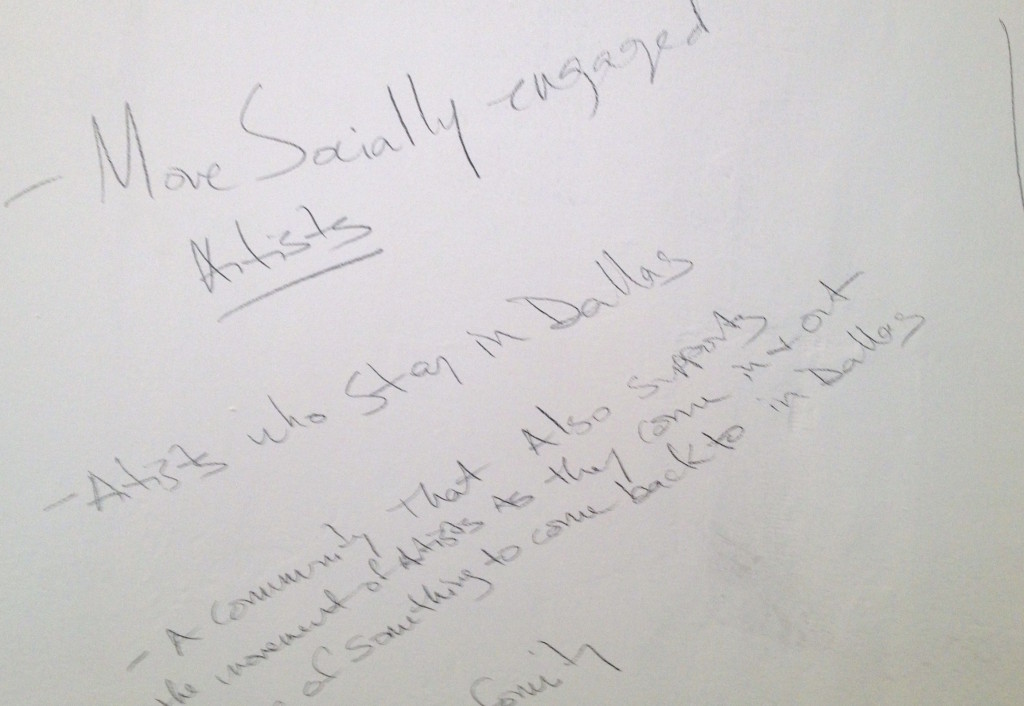 - More Socially engaged
Artists
- Artists who stay in Dallas
- A community that Also supports
the movement of Artists As they come in + out
of something to come back to in Dallas